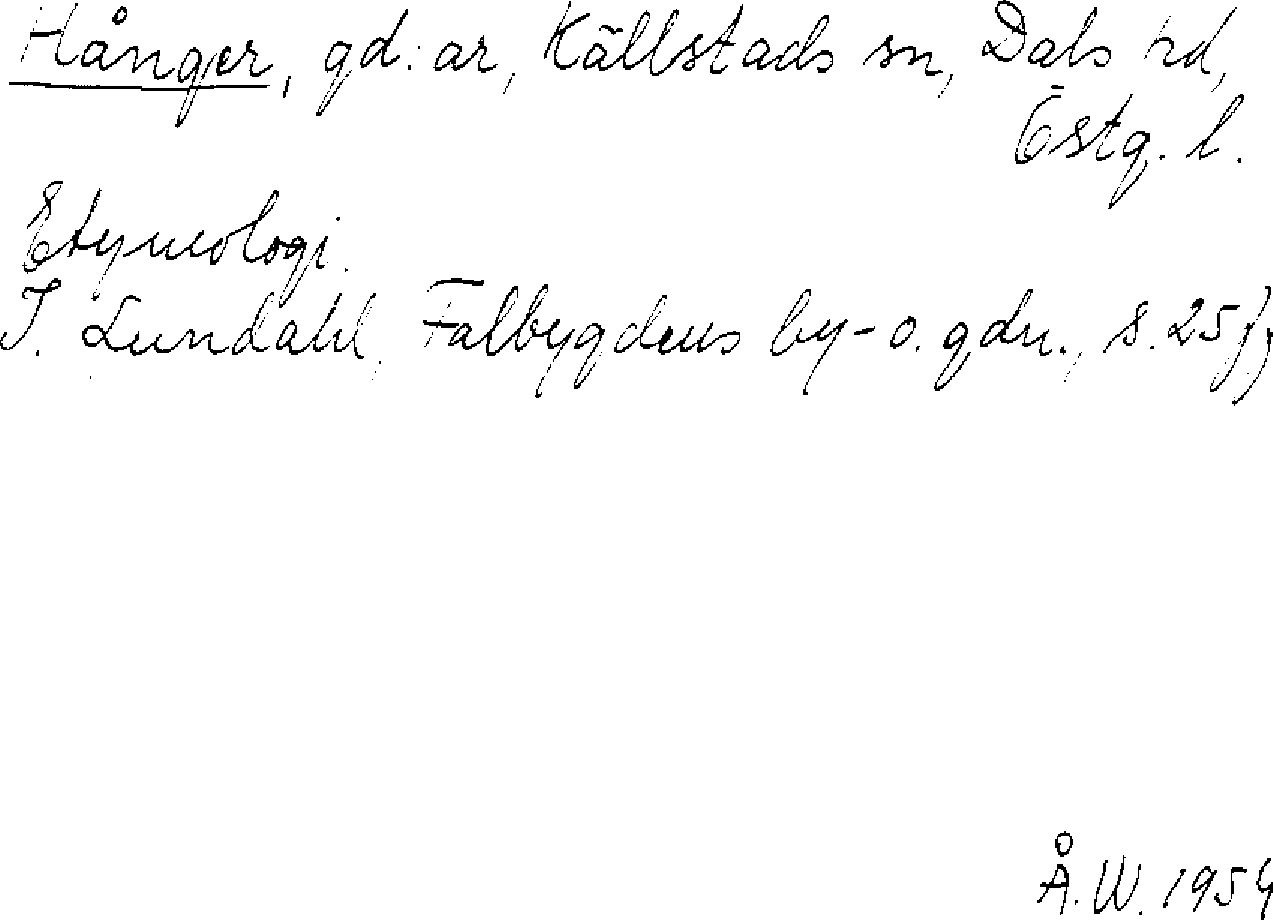 Hånger, gd:ar, Källstads sn, Dals hd,
Östg. l.
Etymologi.
I. Lundahl, Falbygdens by- o. gdn., s. 25 ff
Å.W. 1954